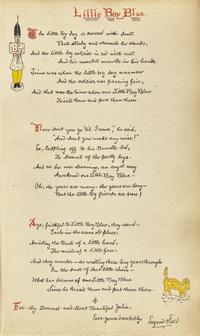 Little Boy Blue.
The little toy dog is covered with dust
But sturdy and staunch he stands,
And the little toy soldier is red with rust
And his musket moulds in his hands.
Time was when the little toy dog was new
And the soldier was passing fair,
And that was the time when our Little Boy Blue
Kissed them and put them there.
"Now don't you go till I come," he said,
"And don't you make any noise!"
So, toddling off to his trundle bed,
He dreamt of the pretty toys.
And as he was dreaming, an angel song
Awakened our Little Boy Blue—
Oh, the years are many—the years are long—
But the little toy friends are true!
Aye, faithful to Little Boy Blue, they stand—
Each in the same old place,
Awaiting the touch of a little hand,
The smile of a little face.
And they wonder—as waiting these long years through
In the dust of that little chair—
What has become of our Little Boy Blue
Since he kissed them and put them there.
For My Dearest and Most Beautiful Julia,
Ever yours devotedly
Eugene Field.